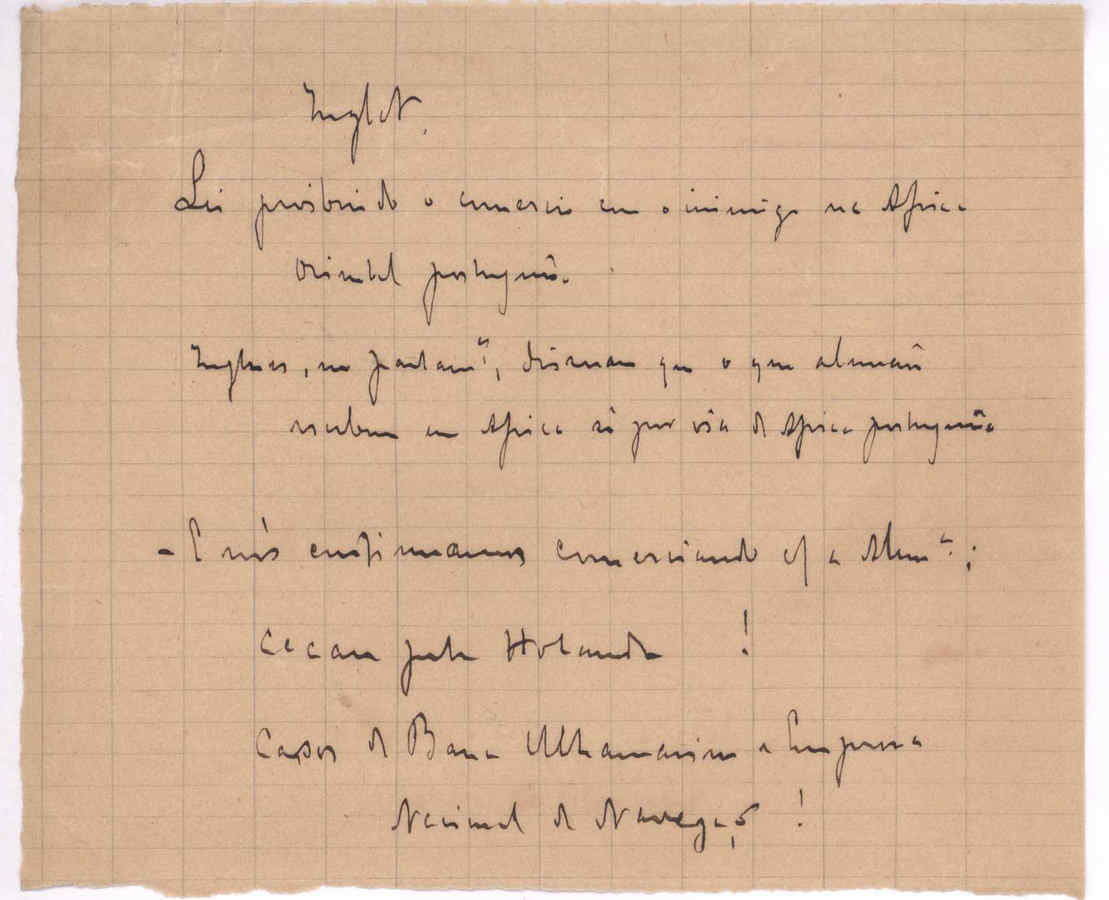 Inglat.
Lei proibindo o comercio com o inimigo na Africa
Oriental portuguêsa.
Ingleses, no parlamto, disseram que o que alemães
recebem em Africa só por via de Africa portuguêsa
- E nós continuamos comerciando c/ a Alema;
cacau pela Holanda !
Casos do Banco Ultramarino e Empresa
Nacional de Navegação !